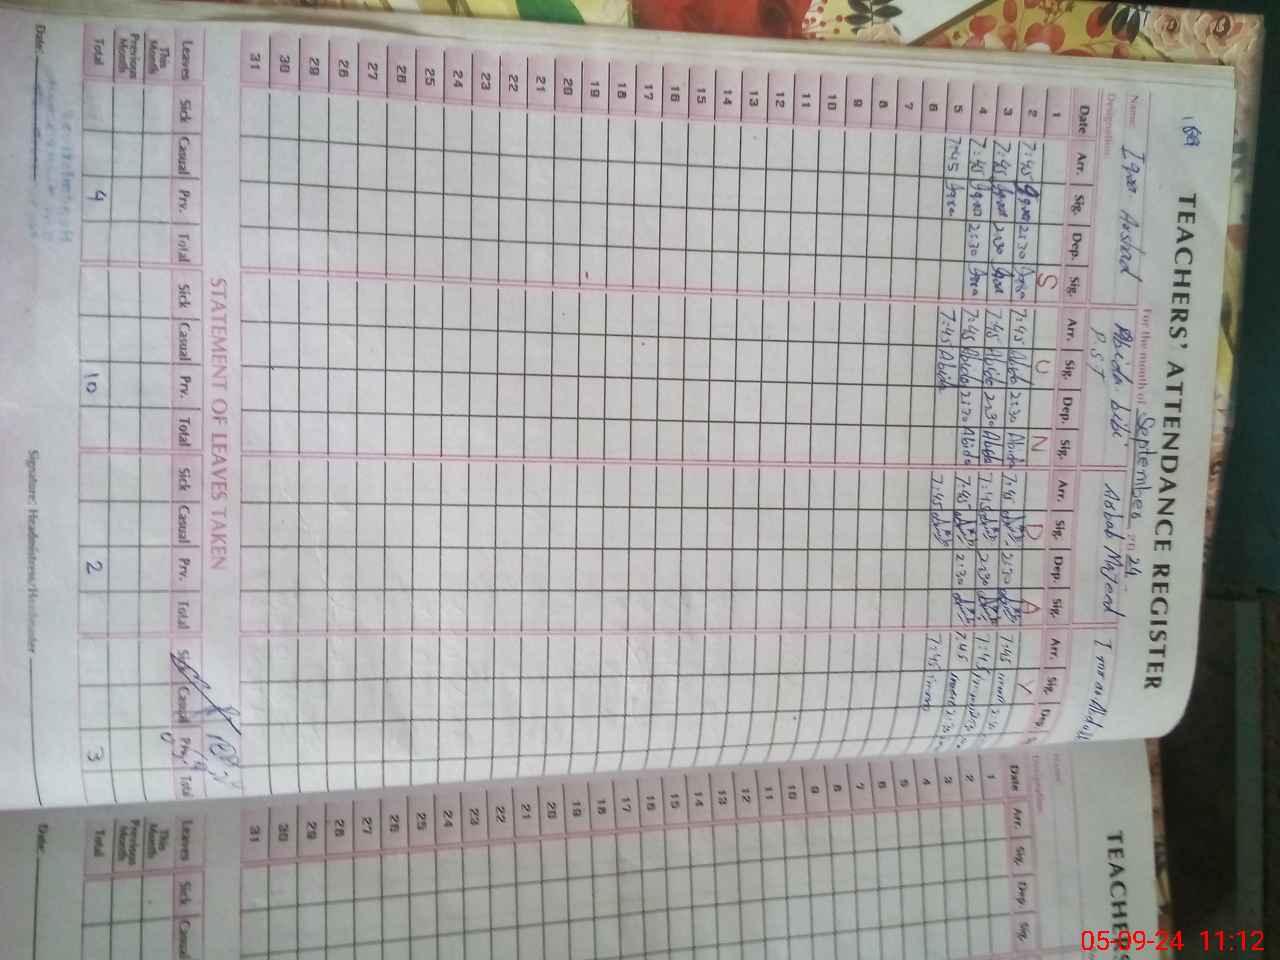 TEACHERS' ATTENDANCE REGISTER
For the month of September 2024
Name Iqra Arshad Abida bibi Arbab Majeed Imran Abdull
Designation P.S.T
Date Arr. Sig. Dep. Sig. Arr. Sig. Dep. Sig. Arr. Sig. Dep. Sig. Arr. Sig. Dep.
1 S U N D A Y
2 7:45 Iqra 2:30 Iqra 7:45 Abida 2:30 Abida 7:45 2:30 7:45
3 7:45 Iqra 2:30 Iqra 7:45 Abida 2:30 Abida 7:45 2:30 7:45
4 7:45 Iqra 2:30 Iqra 7:45 Abida 2:30 Abida 7:45 2:30 7:45
5 7:45 Iqra 7:45 Abida 7:45 7:45
6
7
8
9
10
11
12
13
14
15
16
17
18
19
20
21
22
23
24
25
26
27
28
29
30
31
STATEMENT OF LEAVES TAKEN
Leaves Sick Casual Prv. Total Sick Casual Prv. Total Sick Casual Prv. Total Sick Casual Prv. Total
This Month
Previous Month
Total 4 10 2 3
Date: Signature: Headmistress/Headmaster
TEACHERS
Name
Designation
Date Arr. Sig. Dep. Sig.
1
2
3
4
5
6
7
8
9
10
11
12
13
14
15
16
17
18
19
20
21
22
23
24
25
26
27
28
29
30
31
Leaves Sick Casual
This Month
Previous Month
Total
Date:
05-09-24 11:12